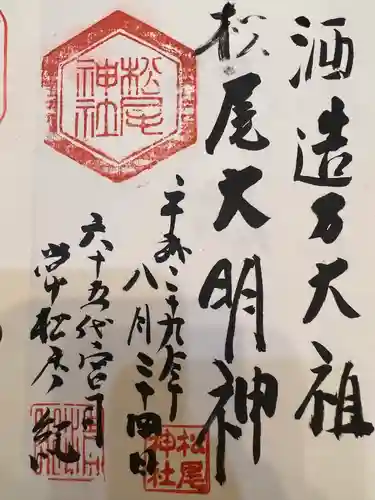 酒造乃大祖
松尾大明神
松尾神社
平成二十九年
八月二十四日
松尾神社
六十五代宮司